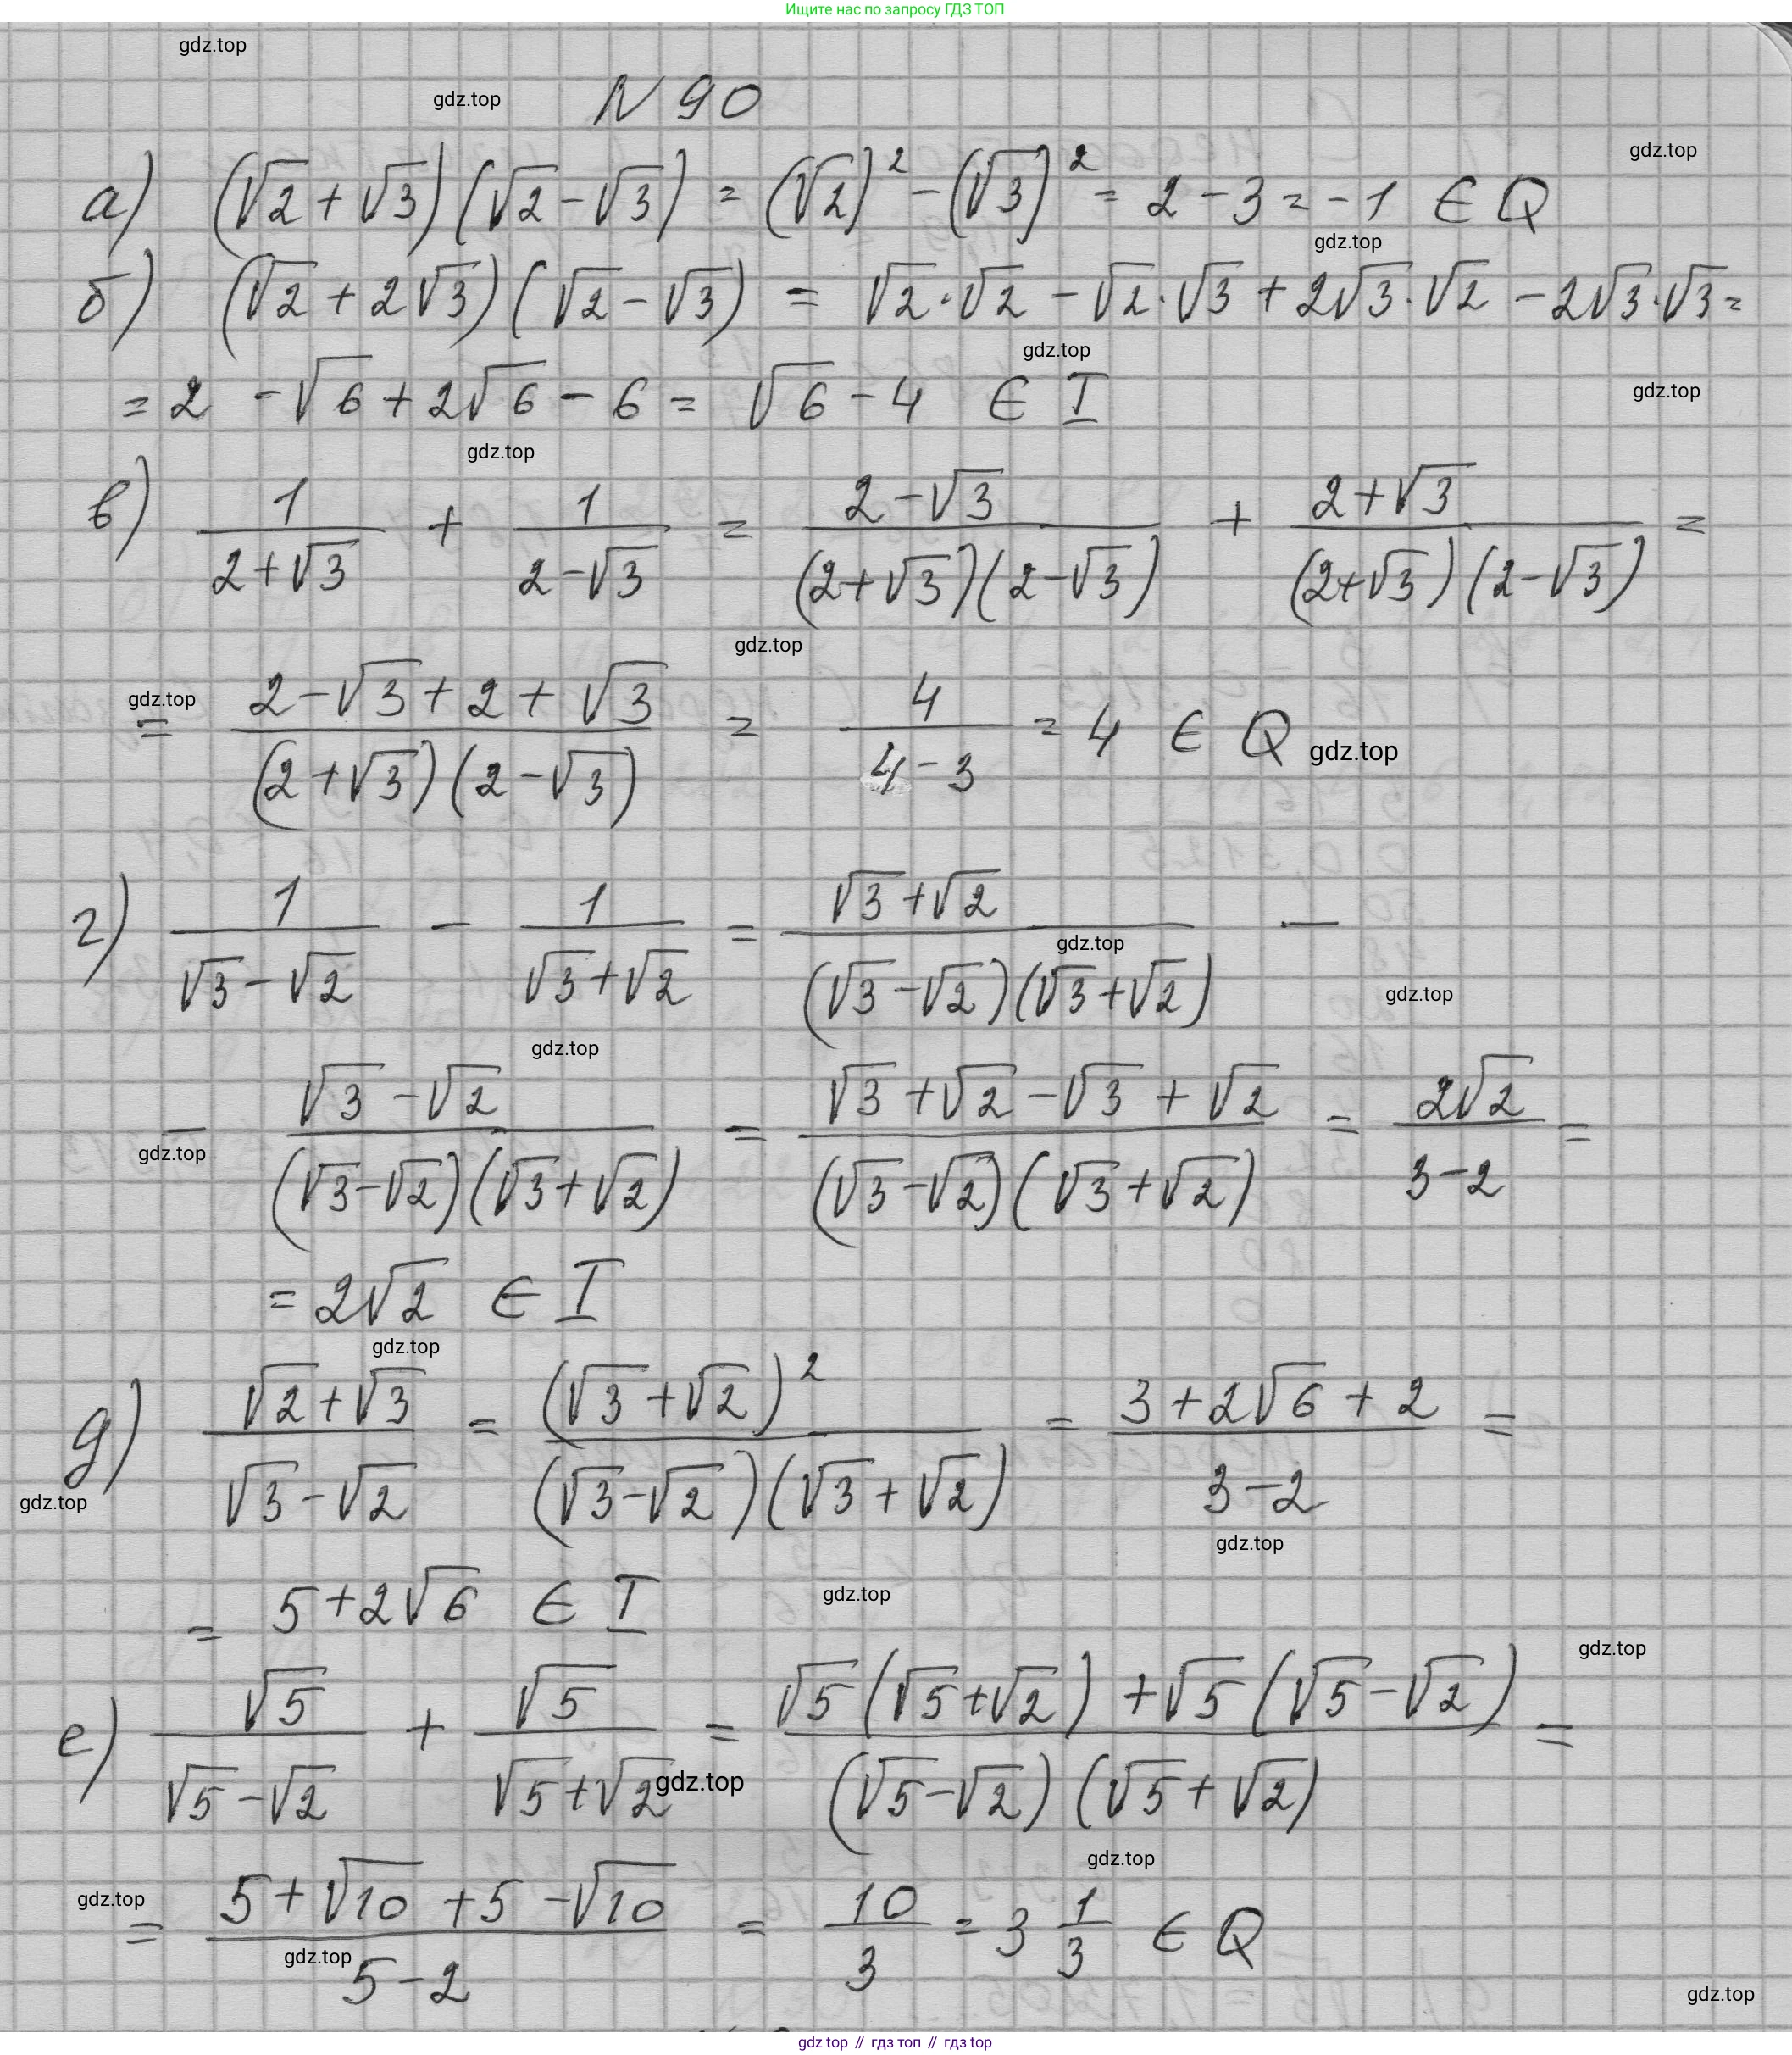 Ищите нас по запросу ГДЗ ТОП
gdz.top
N 90
gdz.top
gdz.top
а) (√2 + √3)(√2 - √3) = (√2)² - (√3)² = 2 - 3 = -1 ∈ Q
gdz.top
б) (√2 + 2√3)(√2 - √3) = √2·√2 - √2·√3 + 2√3·√2 - 2√3·√3 =
gdz.top
= 2 - √6 + 2√6 - 6 = √6 - 4 ∈ I
gdz.top
gdz.top
в) 1/(2+√3) + 1/(2-√3) = (2-√3)/((2+√3)(2-√3)) + (2+√3)/((2+√3)(2-√3)) =
gdz.top
gdz.top
= (2-√3+2+√3)/((2+√3)(2-√3)) = 4/(4-3) = 4 ∈ Q
gdz.top
г) 1/(√3-√2) - 1/(√3+√2) = (√3+√2)/((√3-√2)(√3+√2)) -
gdz.top
gdz.top
gdz.top
- (√3-√2)/((√3-√2)(√3+√2)) = (√3+√2-√3+√2)/((√3-√2)(√3+√2)) = 2√2/(3-2) =
gdz.top
= 2√2 ∈ I
gdz.top
д) (√2+√3)/(√3-√2) = (√3+√2)²/((√3-√2)(√3+√2)) = (3+2√6+2)/(3-2) =
gdz.top
gdz.top
= 5+2√6 ∈ I
gdz.top
gdz.top
е) √5/(√5-√2) + √5/(√5+√2) = (√5(√5+√2)+√5(√5-√2))/((√5-√2)(√5+√2)) =
gdz.top
gdz.top
gdz.top
= (5+√10+5-√10)/(5-2) = 10/3 = 3 1/3 ∈ Q
gdz.top
gdz.top
gdz top // гдз топ // gdz top